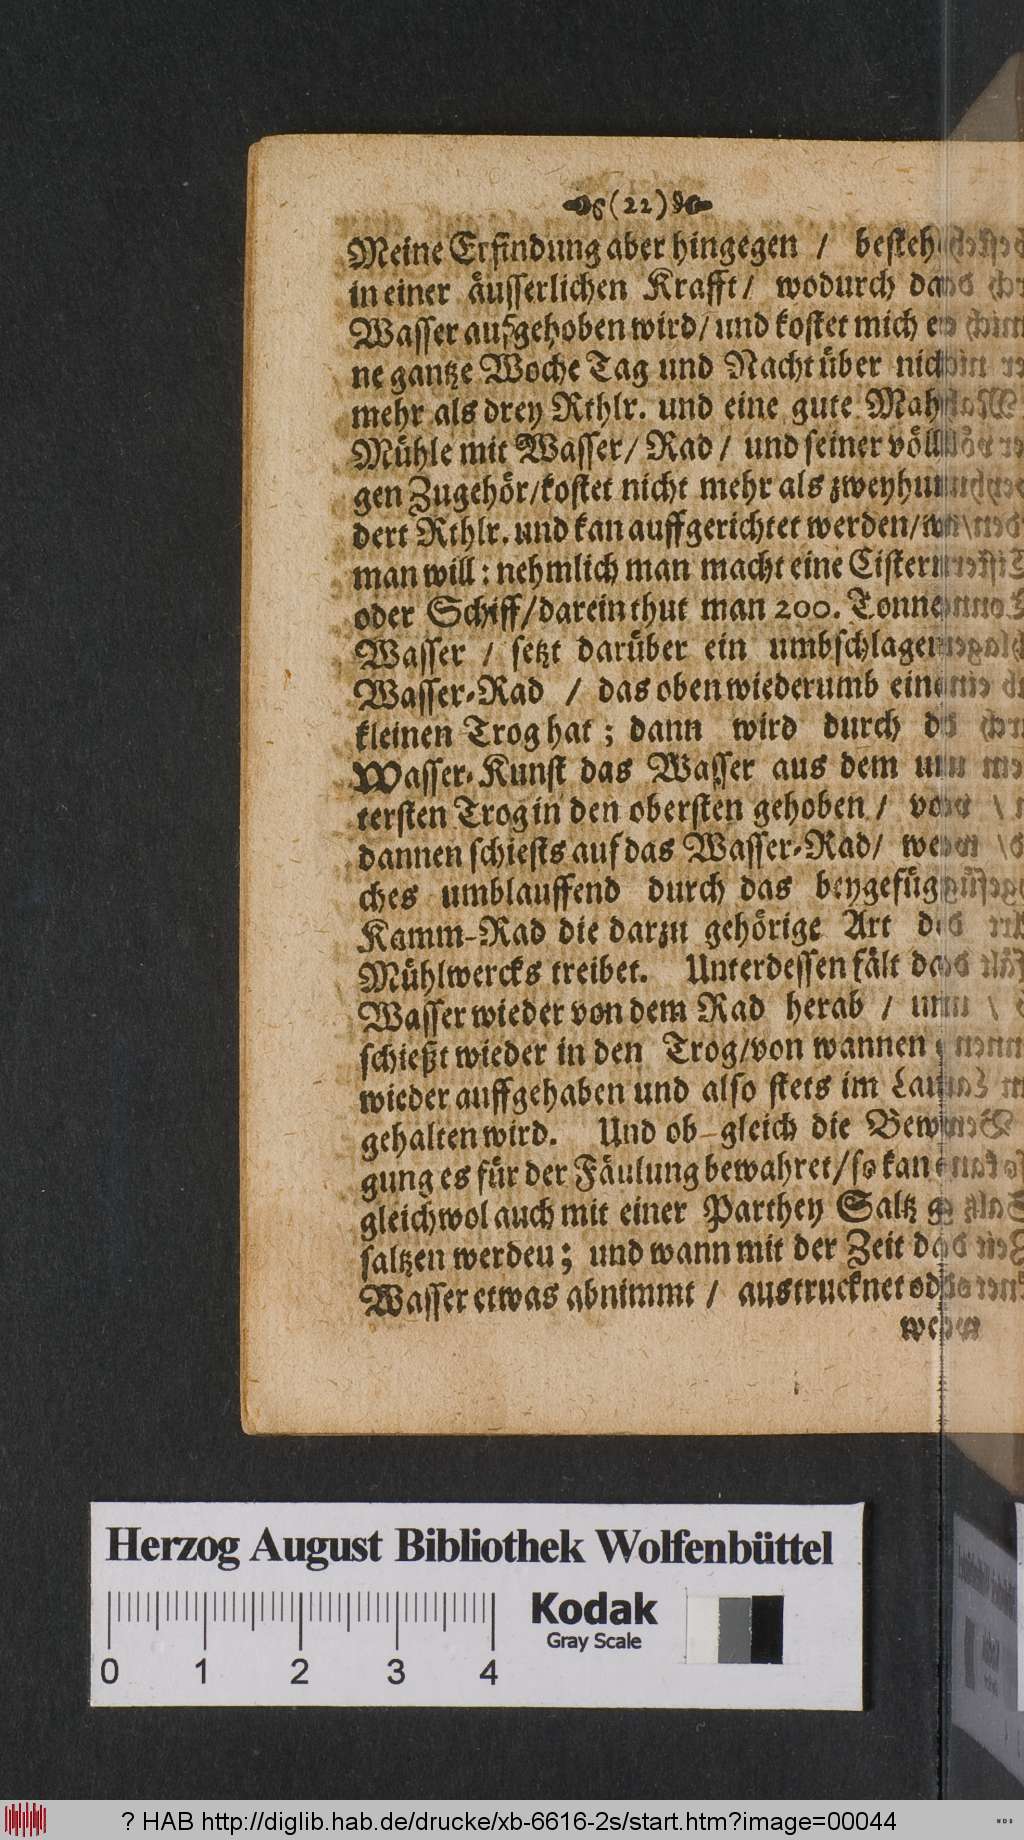 (22)
Meine Erfindung aber hingegen / besteh
in einer äusserlichen Krafft / wodurch das
Wasser aufgehoben wird / und kostet mich ei
ne gantze Woche Tag und Nacht über nicht
mehr als drey Rthlr. und eine gute Mahl
Mühle mit Wasser / Rad / und seiner völli
gen Zugehör / kostet nicht mehr als zweyhun
dert Rthlr. und kan auffgerichtet werden / wo
man will : nehmlich man macht eine Cistern
oder Schiff / darein thut man 200. Tonnen
Wasser / setzt darüber ein umbschlagen
Wasser-Rad / das oben wiederumb einen
kleinen Trog hat ; dann wird durch d
Wasser-Kunst das Wasser aus dem un
tersten Trog in den obersten gehoben / von
dannen schiests auf das Wasser-Rad / wel
ches umblauffend durch das beygefüg
Kamm-Rad die darzu gehörige Art d
Mühlwercks treibet. Unterdessen fält das
Wasser wieder von dem Rad herab / und
schießt wieder in den Trog / von wannen e
wieder auffgehaben und also stets im Lauf
gehalten wird. Und ob-gleich die Bewe
gung es für der Fäulung bewahret / so kan
gleichwol auch mit einer Parthey Saltz ge
saltzen werdeu ; und wann mit der Zeit das
Wasser etwas abnimmt / austrucknet od
Herzog August Bibliothek Wolfenbüttel
Kodak
Gray Scale
0 1 2 3 4
? HAB http://diglib.hab.de/drucke/xb-6616-2s/start.htm?image=00044